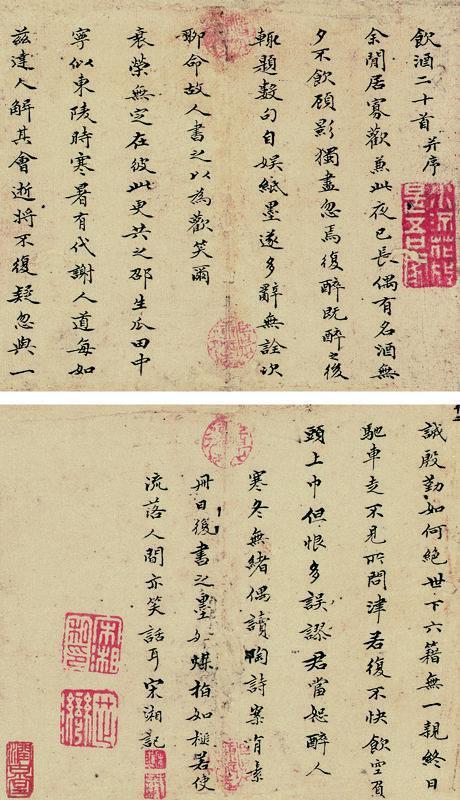 飲酒二十首 并序
余閒居寡歡兼此夜已長偶有名酒無
夕不飲顧影獨盡忽焉復醉既醉之後
輒題數句自娛紙墨遂多辭無詮次
聊命故人書之以為歡笑爾
衰榮無定在彼此更共之邵生瓜田中
寧似東陵時寒暑有代謝人道每如
茲達人解其會逝將不復疑忽與一
誠殷勤如何絕世下六籍無一親終日
馳車走不見所問津若復不快飲空負
頭上巾但恨多誤謬君當恕醉人
寒冬無緒偶讀陶詩案有素
冊日後書之墨如煤如槌若使
流落人間亦笑話耳宋湘記
宋湘私印